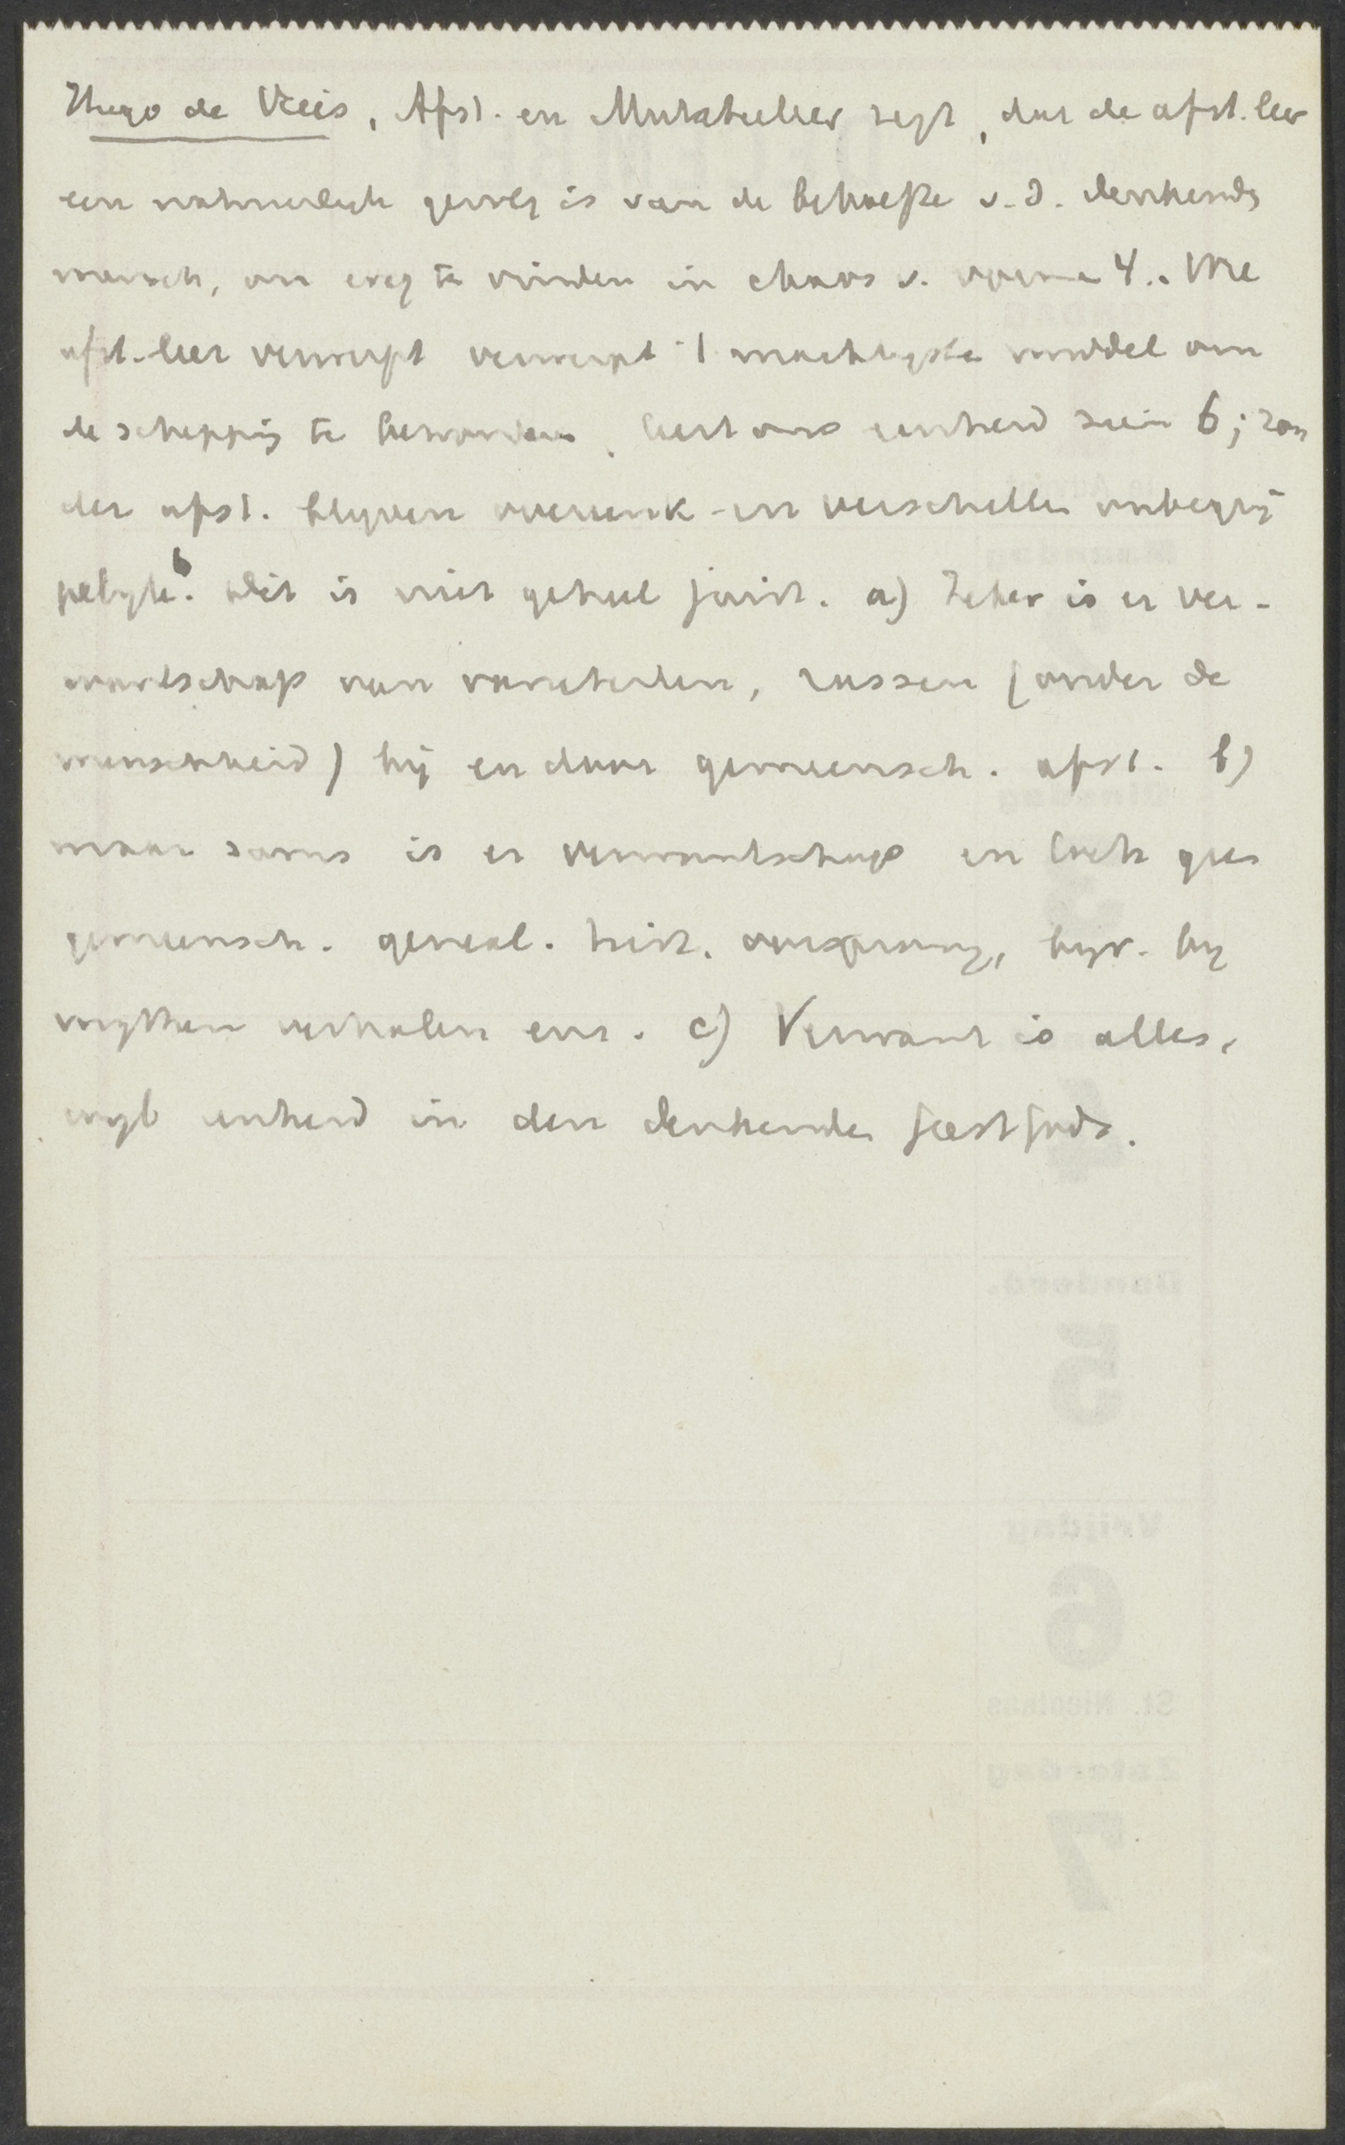 Hugo de Vries, Afst. en Mutatieleer zegt, dat de afst. leer
een natuurlijk gevolg is van de behoefte v. d. denkende
mensch, om te vinden in chaos v. vorme 4.. Wie
afst.-leer verwerpt verwerpt 't machtigste middel om
de schepping te bewonderen, leert ons eenheid zien 6; zon
der afst. blijven overeenk- en verschille onbegrij
pelijk 6. Dit is niet geheel juist. a) Zeker is er ver-
wantschap van varieteiten, rassen (onder de
menschheid) bij en door gemeensch. afst. b)
maar soms is er verwantschap en toch geen
gemeensch. geneal. hist. oorsprong, bijv. bij
mythen verhalen enz. c) Verwant is alles,
wijl eenheid in den denkende Gods.